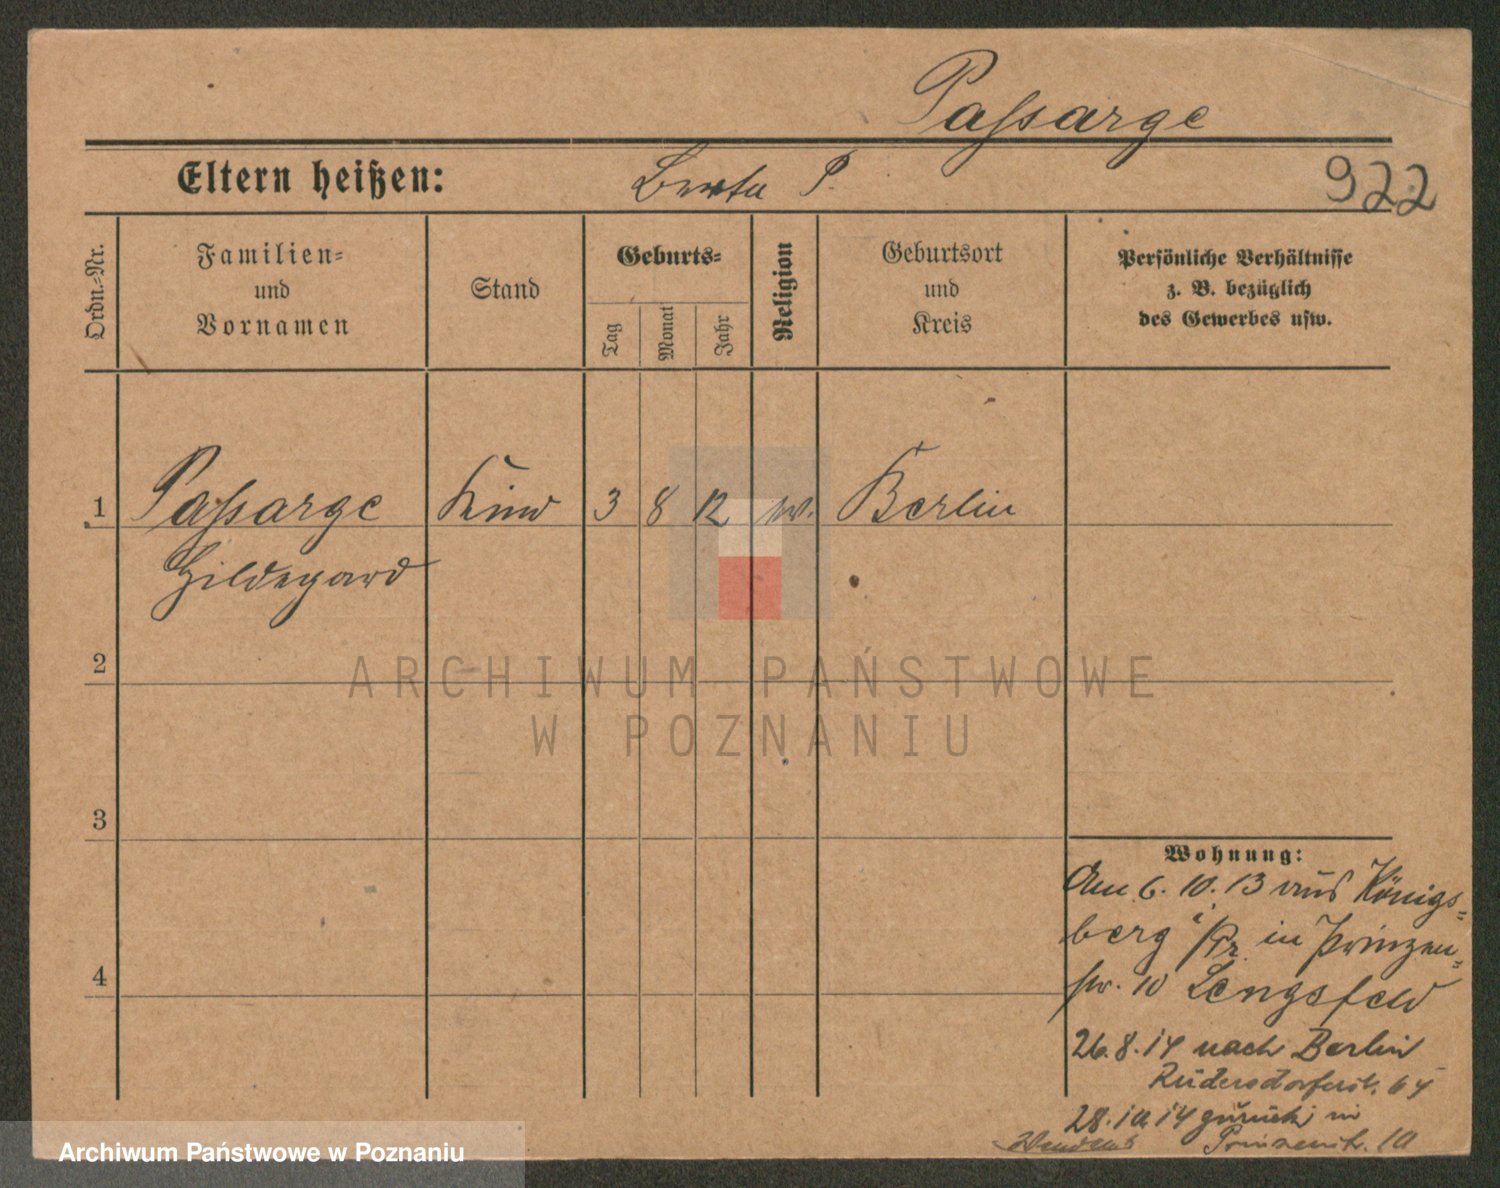 Paſsarge
Eltern heißen: Berta P.
922
Ordn.-Nr.
Familien-
und
Vornamen
Stand
Geburts-
Tag
Monat
Jahr
Religion
Geburtsort
und
Kreis
Persönliche Verhältnisse
z. B. bezüglich
des Gewerbes usw.
1 Paſsarge Kind 3 8 12 ev. Berlin
Hildegard
2
3
4
Wohnung:
Am 6.10.13 aus Königs-
berg i/Pr. in Prinzen-
str. 10 Lengsfeld
26.8.14 nach Berlin
Rüdersdorferst. 64
28.10.14 zurück in
Prinzenstr. 10
ARCHIWUM PAŃSTWOWE
W POZNANIU
Archiwum Państwowe w Poznaniu